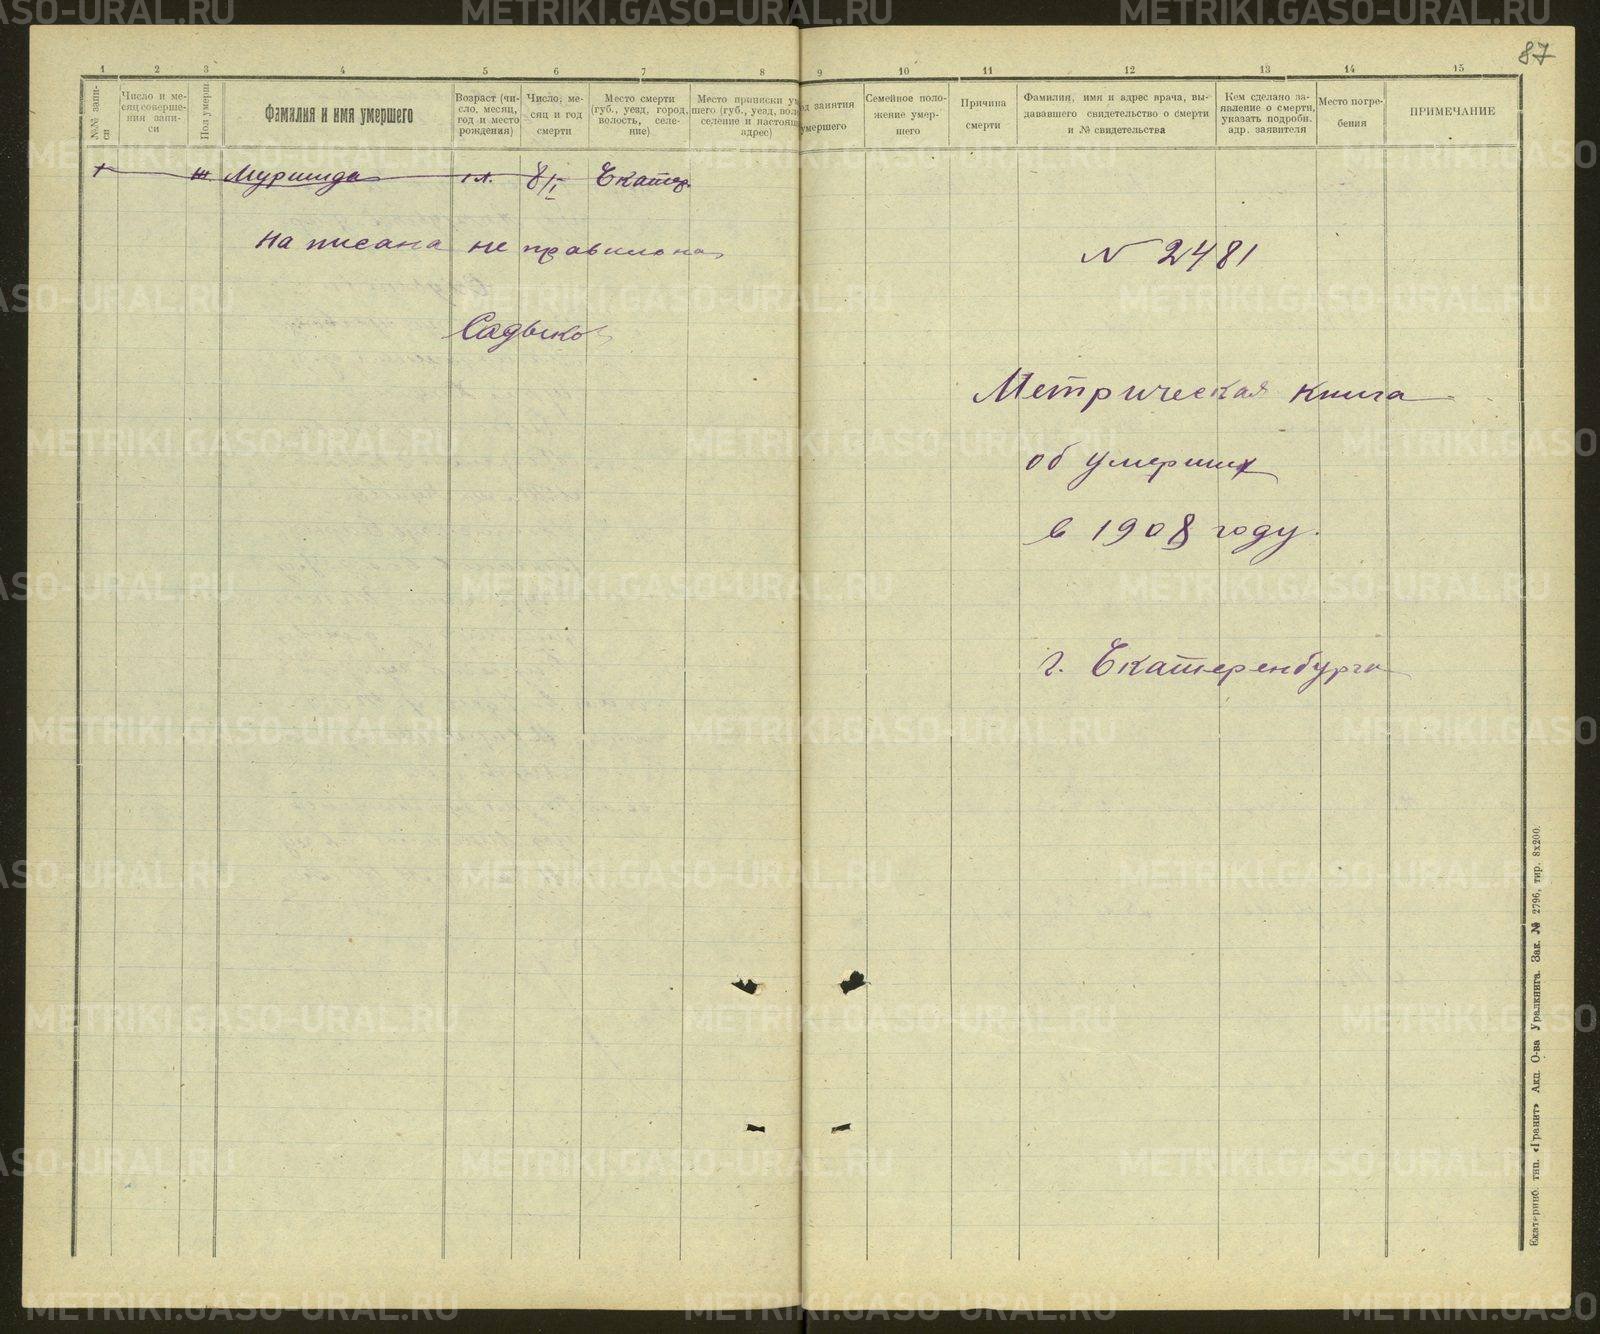 87
1 2 3 4 5 6 7 8 9 10 11 12 13 14 15
№№ запи-
си
Число и ме-
сяц соверше-
ния запи-
си
Пол умерш
Фамилия и имя умершего
Возраст (чи-
сло, месяц,
год и место
рождения)
Число, ме-
сяц и год
смерти
Место смерти
(губ., уезд, город,
волость, селе-
ние)
Место приписки у
шего (губ., уезд, воло
селение и настоящ
адрес)
од занятия
умершего
Семейное поло-
жение умер-
шего
Причина
смерти
Фамилия, имя и адрес врача, вы-
дававшего свидетельство о смерти
и № свидетельства
Кем сделано за-
явление о смерти,
указать подробн.
адр. заявителя
Место погре-
бения
ПРИМЕЧАНИЕ
1 ж Муршида 1 л. 8/I Екатер.
на писана не правилона
Садыков
N 2481
Метрическая книга
об умерших
в 1908 году.
г. Екатеренбурга
Екатеринб. тип. «Гранит» Акп. О-ва Уралкнига. Зак. № 2796, тир. 8х200.
METRIKI.GASO-URAL.RU